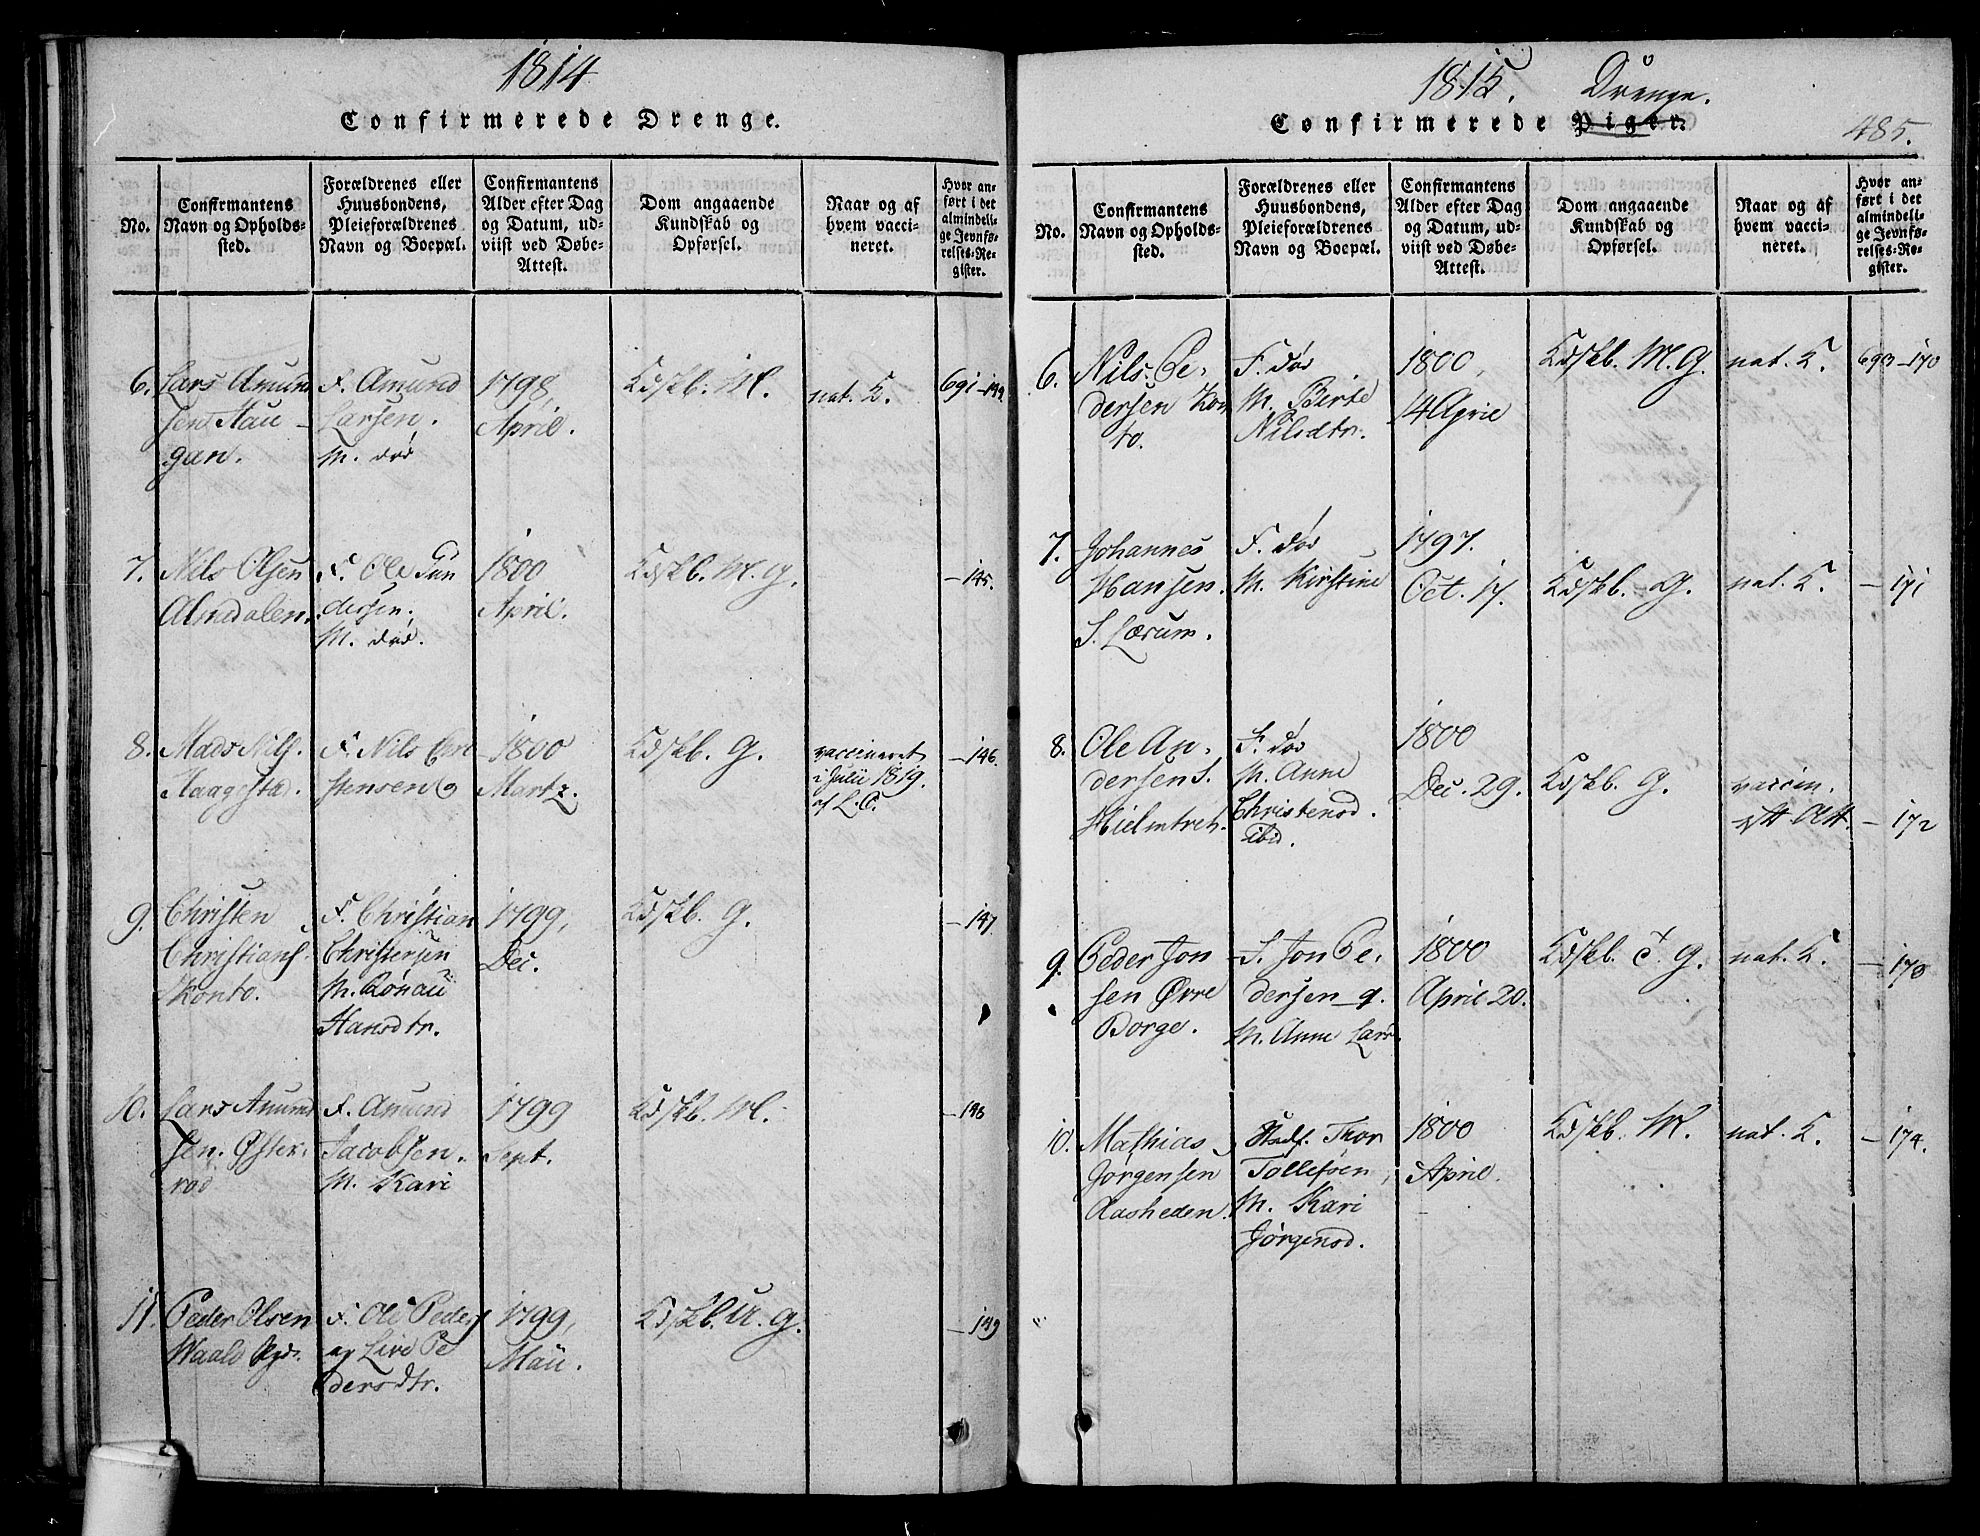 1814
Confirmerede Drenge.
No.
Confirmantens
Navn og Opholds-
sted.
Forældrenes eller
Huusbondens,
Pleieforældrenes
Navn og Boepæl.
Confirmantens
Alder efter Dag
og Datum, ud-
viist ved Døbe-
Attest.
Dom angaaende
Kundskab og
Opførsel.
Naar og af
hvem vacci-
neret.
Hvor an-
ført i det
almindeli-
ge Jevnfø-
relses-Re-
gister.
6.
Lars Amun
sen Hau
gan.
F. Amund
Larsen.
M. død
1798,
April.
Kdskb. M.
nat. K.
691-144.
7.
Nils Olsen
Almdalen.
F. Ole Gun
dersen,
M. død.
1800
April.
Kdskb. M. G.
-145.
8.
Mads Nils.
Haagestad.
F. Nils Chri
stensen
1800
Martz.
Kdskb. G.
vaccineret
i Julii 1819.
af L. C.
-146.
9.
Christen
Christians.
Konto.
F. Christian
Christensen
M. Rönau
Hansdtr.
1799,
Dec.
Kdskb. G.
-147.
10.
Lars Amund
sen. Øster-
rød
F. Amund
Jacobsen.
M. Kari
1799
Sept.
Kdskb. M.
-148
11.
Peder Olsen
Waale
F. Ole Peders
og Live Pe
dersdtr.
1799,
Maii.
Kdskb. U. G.
-149
1815. Drenge.
Confirmerede Piger.
485.
No.
Confirmantens
Navn og Opholds-
sted.
Forældrenes eller
Huusbondens,
Pleieforældrenes
Navn og Boepæl.
Confirmantens
Alder efter Dag
og Datum, ud-
viist ved Døbe-
Attest.
Dom angaaende
Kundskab og
Opførsel.
Naar og af
hvem vacci-
neret.
Hvor an-
ført i det
almindeli-
ge Jevnfø-
relses-Re-
gister.
6.
Nils Pe-
dersen Kon
to.
F. død
M. Birte
Nilsdtr.
1800,
14 April
Kdskb. M. G.
nat. K.
693-170
7.
Johannes
Hansen.
S. Lærum.
F. død
M. Kirstine
1797.
Oct. 17.
Kdskb. G.
nat. K.
-171
8.
Ole An-
dersen S.
Hielmtveh.
F. død
M. Anne
Christensd.
ibid.
1800
Dec. 29.
Kdskb. G.
vaccin.
Att.
-172
9.
Peder Jon
sen Øvre
Borge.
F. Jon Pe-
dersen
M. Anne Lars
1800
April 20.
Kdskb. T. G.
nat. K.
-173
10.
Mathias
Jörgensen
Aasheden.
Stedf. Thor
Tollefsen,
M. Kari
Jörgensd.
1800
April.
Kdskb. M.
nat. K.
-174.